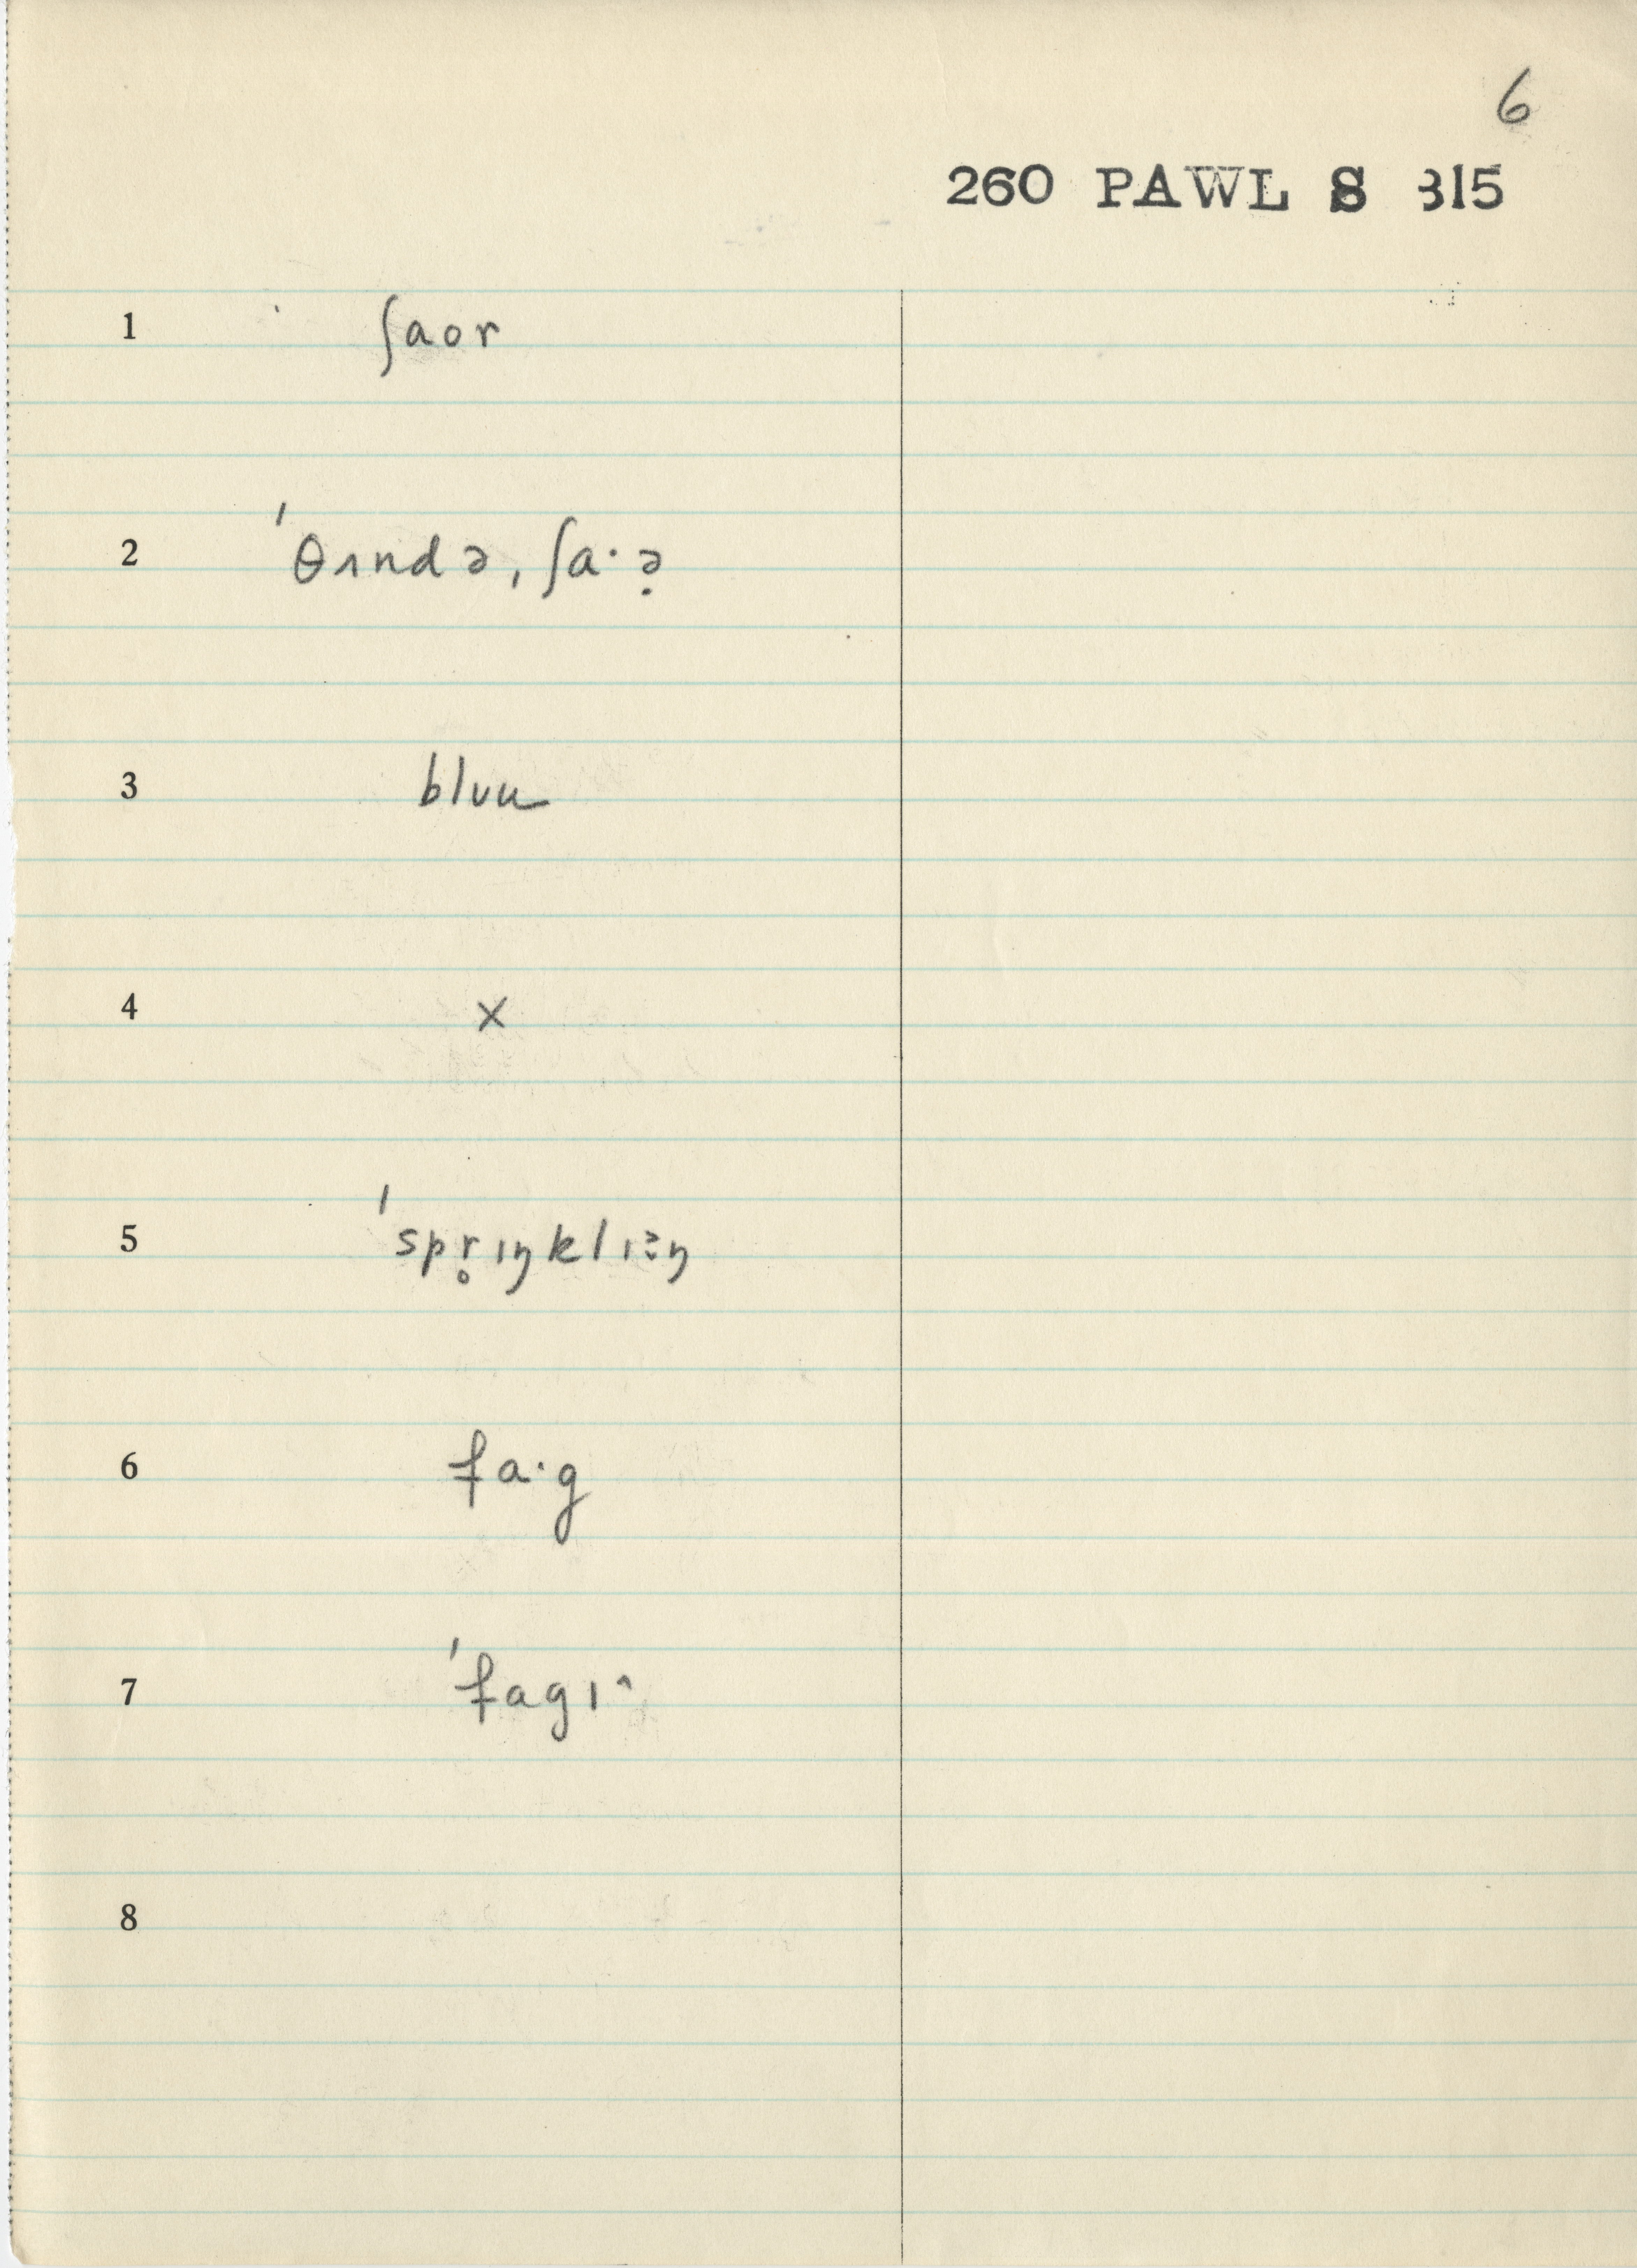 6
260 PAWL S 315
1 ʃaor
2 ˈθʌndə, ʃa·ə̣
3 blvu
4 x
5 ˈspr̥ɪŋklɪn
6 fa·g
7 ˈfagɪ^
8